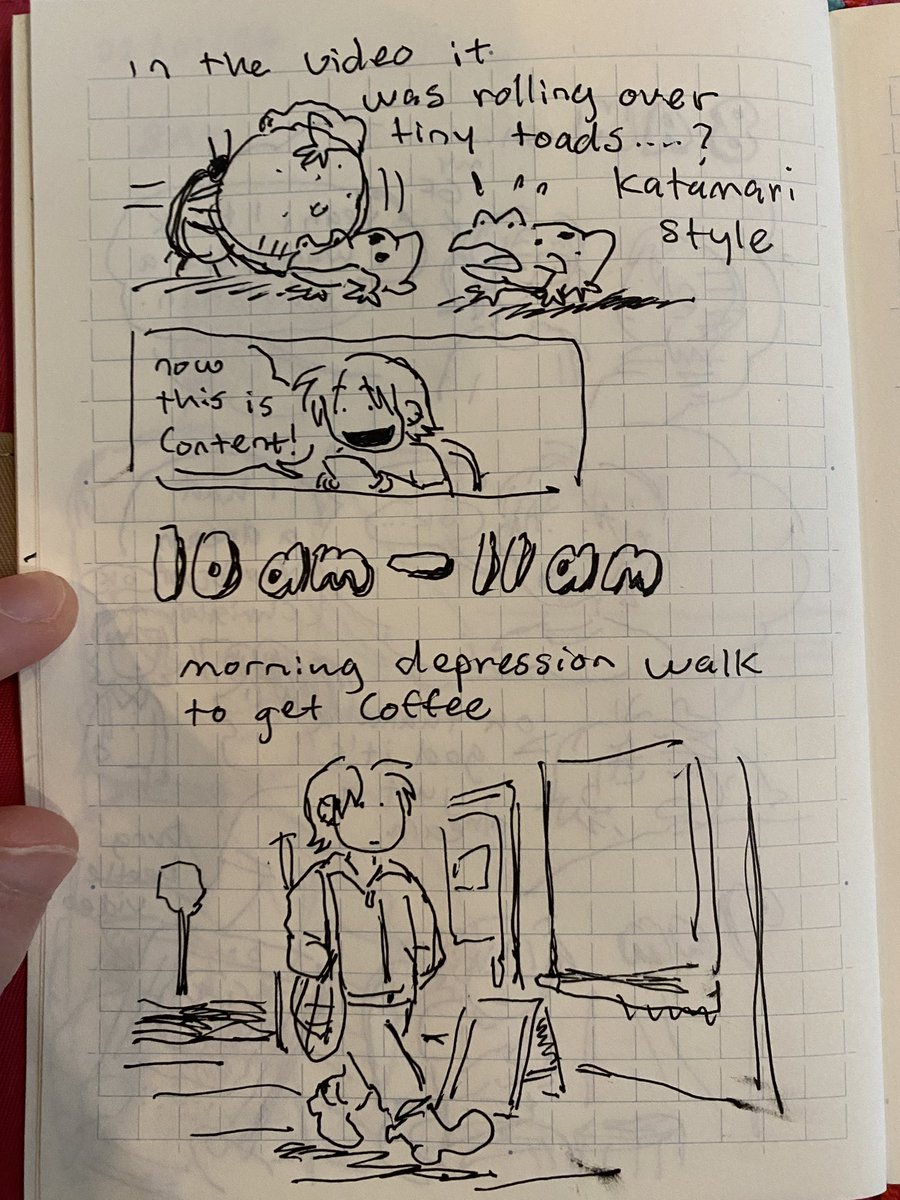 in the video it
was rolling over
tiny toads....?
Katamari
style
now
this is
Content!
10am-11am
morning depression walk
to get Coffee